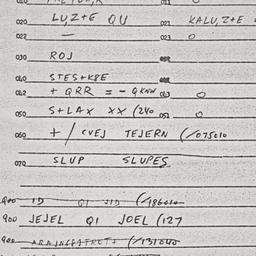 020 LUZ+E QU 021 KALU,Z+E
022 — 023 O
030 ROJ
040 STES+K8E
042 + QRR = - QKNW 043 O
050 S+LAX XX (240 051 O
060 +/CVEJ TEJERN (/075010
070 SLUP SLUPES
900 ID QI JID (186010
900 JEJEL QI JOEL (127
900 (131040